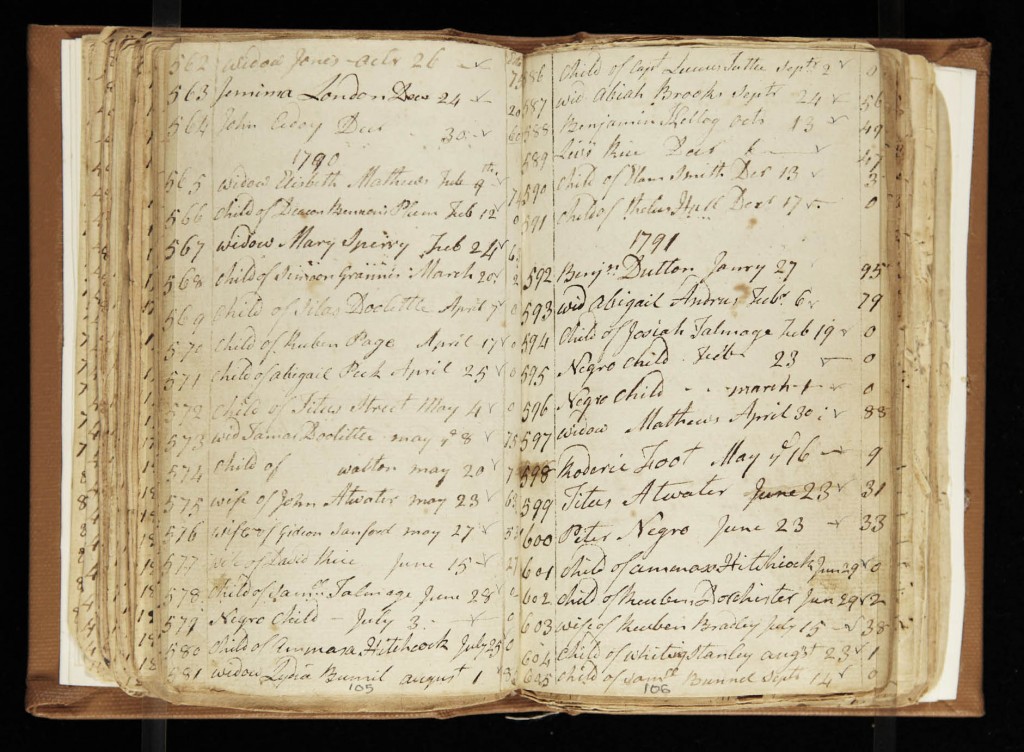 562 Widow Jones octr 26
563 Jemima London Decr 24
564 John Decr 30
1790
565 widow Elisbeth Mathews Feb 9th
566 Child of Deacon Plum Feb 12
567 widow Mary Sperry Feb 24
568 Child of Simeon Grannis March 20
569 Child of Silas Doolittle April 7
570 Child of Ruben Page April 17
571 Child of abigail Peck April 25
572 Child of Titus Street May 4
573 wid Tamar Doolittle may ye 8
574 Child of walton may 20
575 wife of John Atwater may 23
576 wife of Gideon Sanford may 27
577 wife of David Rice June 15
578 Child of Samll Talmage June 28
579 Negro Child – July 3
580 Child of Ammasa Hitchcock July 25 0
581 widow Lydia Bunnil august 1
105
586 Child of Capt Sept 2 0
587 wid Abiah Brooks Sept 24 56
588 Benjamin Kellog octr 13 49
589 Levi Rice Decr 47
590 Child of Elam Smith Der 13 3
591 Child of Hull Decr 17 0
1791
592 Benjn Dutton Janry 27 95
593 wid Abigail Andrus Febr 6 79
594 Child of Josiah Talmage Feb 19 0
595 Negro Child Feb 23 0
596 Negro Child march 1 0
597 widow Mathews April 30 88
598 Roderic Foot May ye 16 9
599 Titus Atwater June 23 31
600 Peter Negro June 23 33
601 Child of ammasa Hitchcock Jun 29 0
602 Child of Reuben Dorchester Jun 29 2
603 wife of Reuben Bradley July 15 38
604 Child of whiting Stanley augst 23 1
605 Child of Samll Bunnel Sept 14 0
106